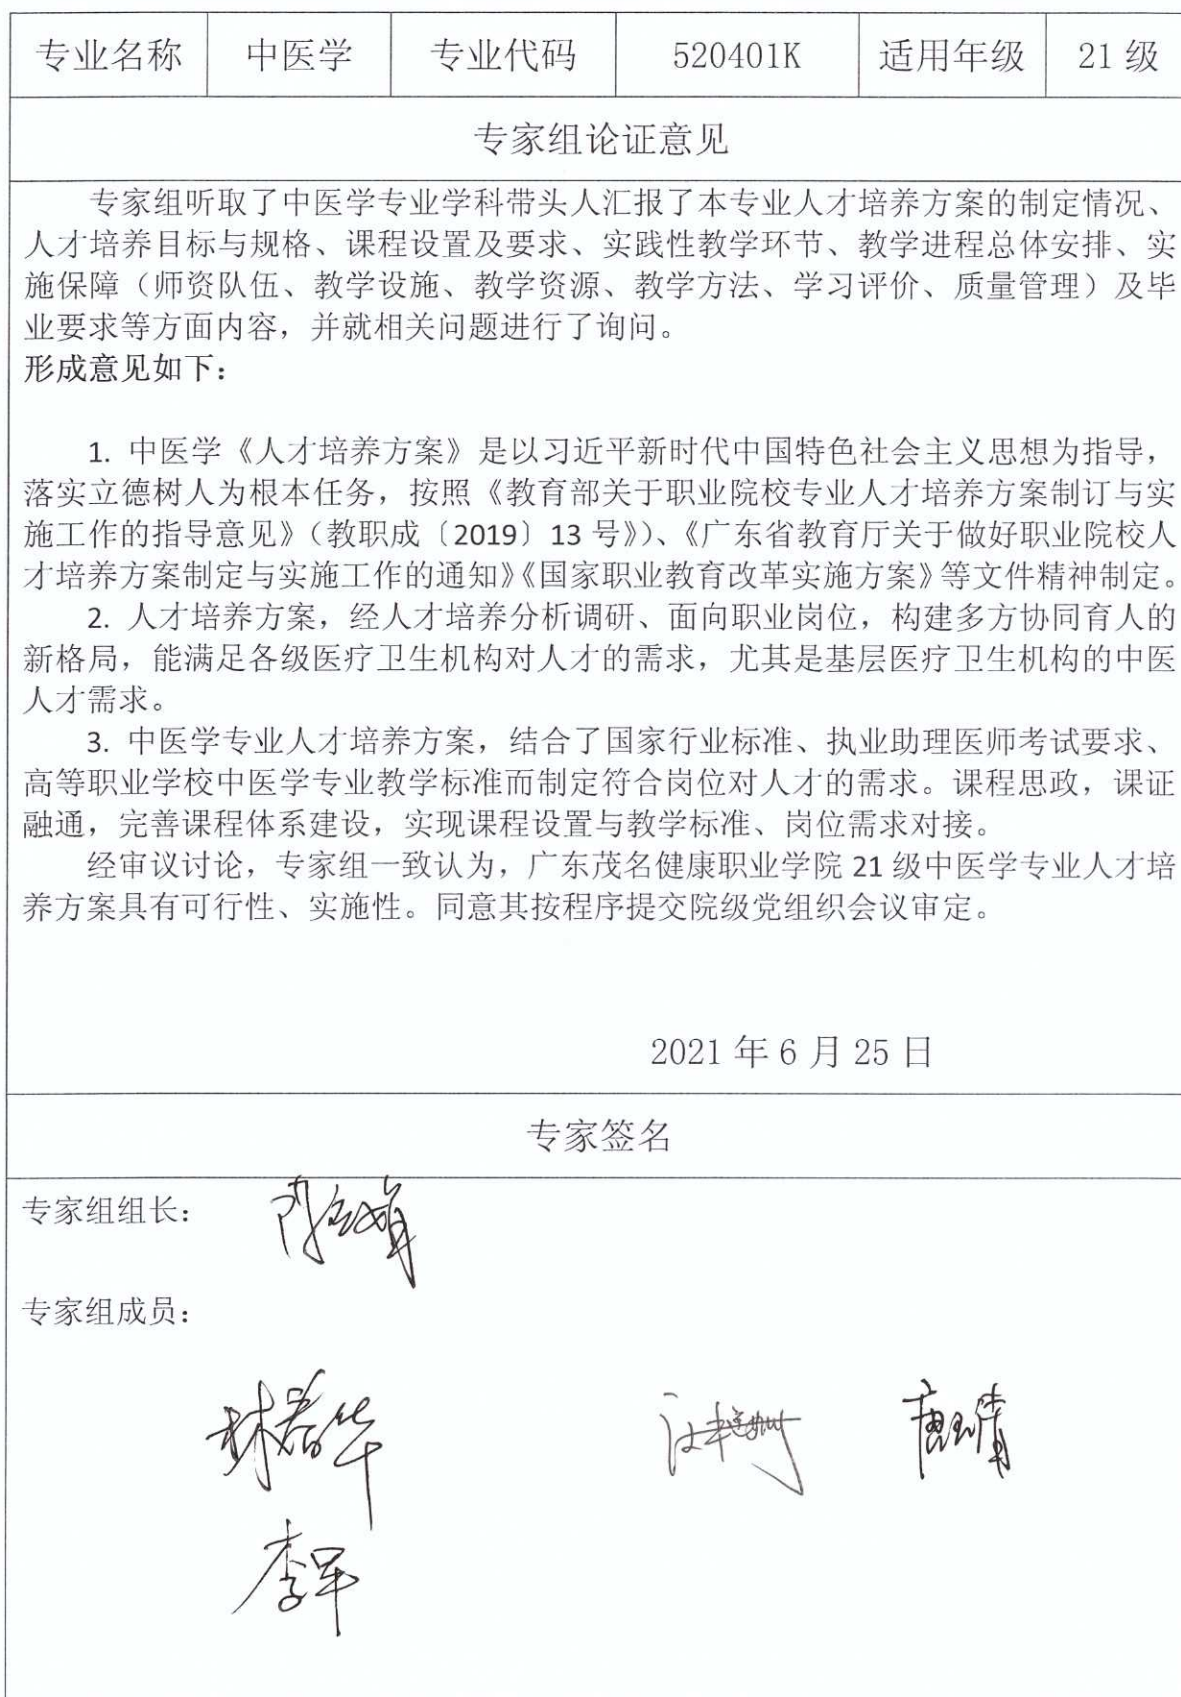 专业名称 中医学 专业代码 520401K 适用年级 21 级
专家组论证意见
专家组听取了中医学专业学科带头人汇报了本专业人才培养方案的制定情况、
人才培养目标与规格、课程设置及要求、实践性教学环节、教学进程总体安排、实
施保障（师资队伍、教学设施、教学资源、教学方法、学习评价、质量管理）及毕
业要求等方面内容，并就相关问题进行了询问。
形成意见如下：
1. 中医学《人才培养方案》是以习近平新时代中国特色社会主义思想为指导，
落实立德树人为根本任务，按照《教育部关于职业院校专业人才培养方案制订与实
施工作的指导意见》（教职成〔2019〕13 号》）、《广东省教育厅关于做好职业院校人
才培养方案制定与实施工作的通知》《国家职业教育改革实施方案》等文件精神制定。
2. 人才培养方案，经人才培养分析调研、面向职业岗位，构建多方协同育人的
新格局，能满足各级医疗卫生机构对人才的需求，尤其是基层医疗卫生机构的中医
人才需求。
3. 中医学专业人才培养方案，结合了国家行业标准、执业助理医师考试要求、
高等职业学校中医学专业教学标准而制定符合岗位对人才的需求。课程思政，课证
融通，完善课程体系建设，实现课程设置与教学标准、岗位需求对接。
经审议讨论，专家组一致认为，广东茂名健康职业学院 21 级中医学专业人才培
养方案具有可行性、实施性。同意其按程序提交院级党组织会议审定。
2021 年 6 月 25 日
专家签名
专家组组长：
专家组成员：
李军